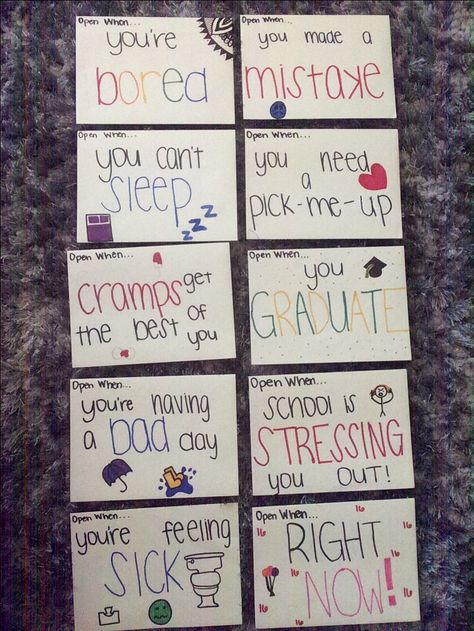 Open When...
you're
bored
Open When...
you made a
mistake
Open When...
you can't
SLEEP
z z z
Open When...
you need
a
pick-me-up
Open When...
CRAMPS get
the best of
you
Open When...
you
GRADUATE
Open When...
you're having
a BAD day
Open When...
SCHOOL is
STRESSING
you OUT!
Open When...
you're feeling
SICK
Open When...
16
RIGHT
16
16
NOW!
16
16
16
16